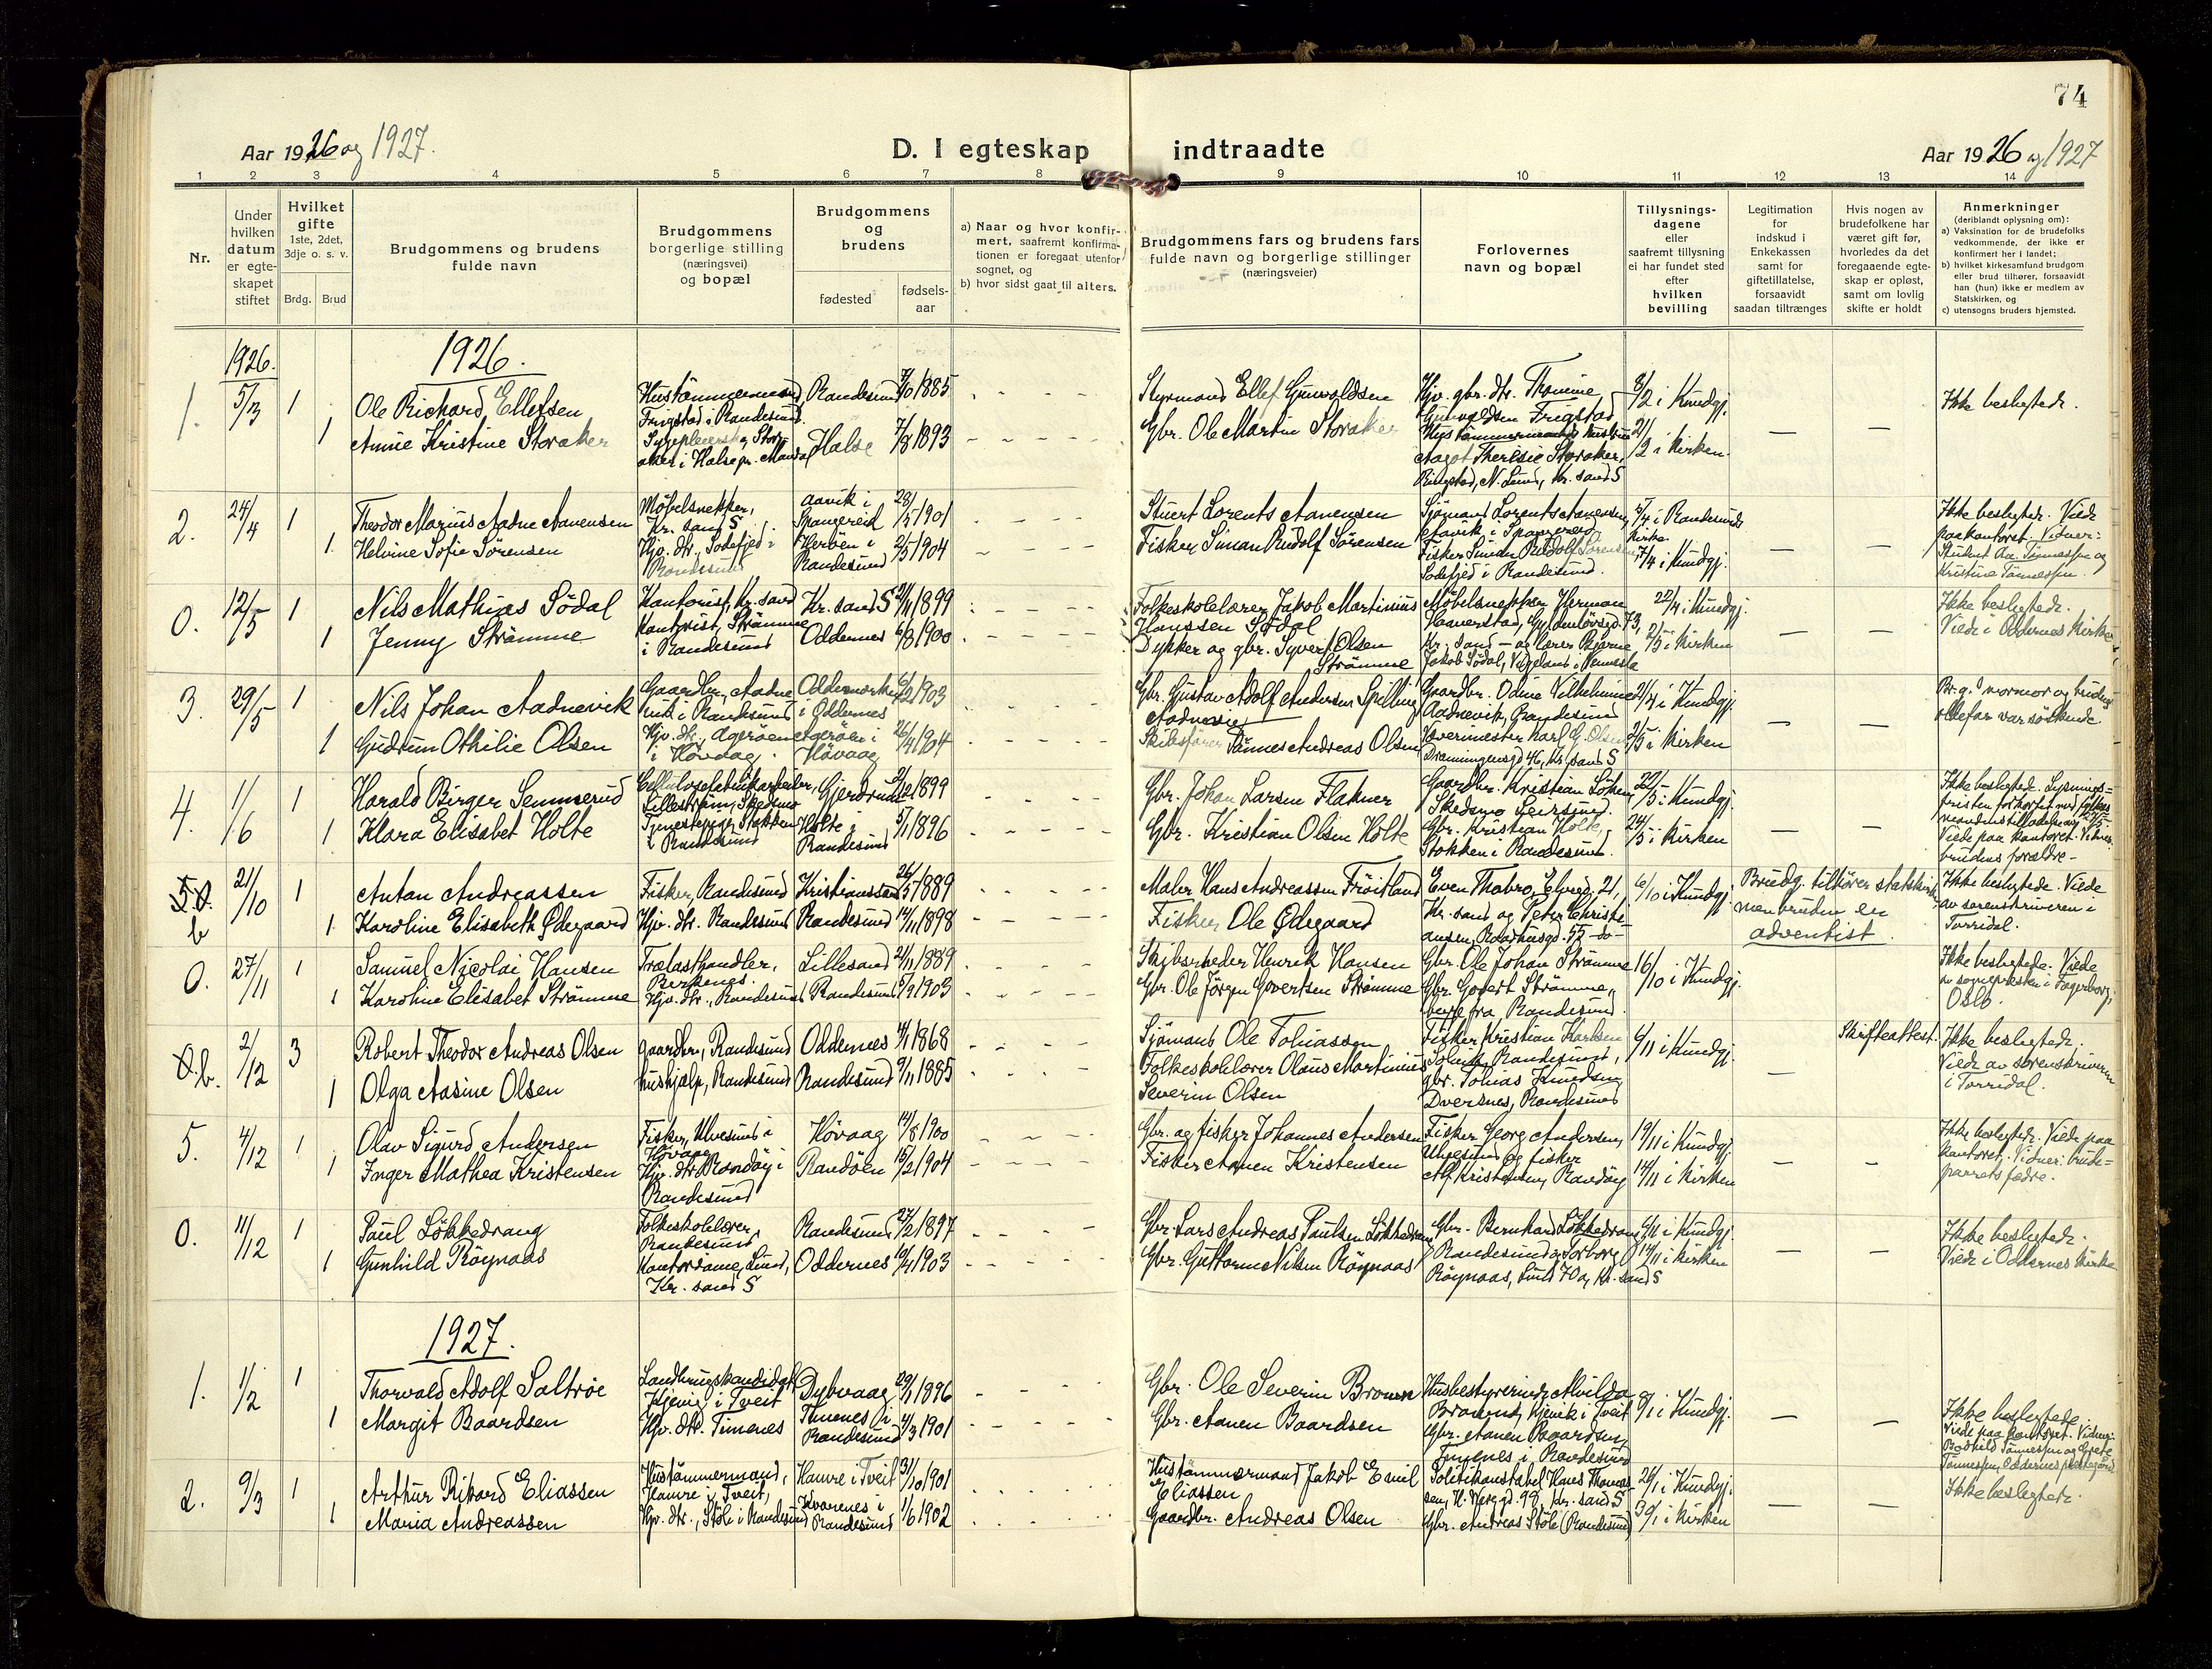 74
Aar 1926 og 1927.
D. I egteskap indtraadte
Aar 1926 og 1927
1 2 3 4 5 6 7 8 9 10 11 12 13 14
Nr.
Under hvilken datum er egteskapet stiftet
Hvilket gifte
1ste, 2det, 3dje o. s. v.
Brdg. Brud
Brudgommens og brudens fulde navn
Brudgommens borgerlige stilling (næringsvei) og bopæl
Brudgommens og brudens
fødested
fødsels-aar
a) Naar og hvor konfirmert, saafremt konfirmationen er foregaat utenfor sognet, og
b) hvor sidst gaat til alters.
Brudgommens fars og brudens fars fulde navn og borgerlige stillinger (næringsveier)
Forlovernes navn og bopæl
Tillysningsdagene eller saafremt tillysning ei har fundet sted efter hvilken bevilling
Legitimation for indskud i Enkekassen samt for giftetillatelse, forsaavidt saadan tiltrænges
Hvis nogen av brudefolkene har været gift før, hvorledes da det foregaaende egteskap er opløst, samt om lovlig skifte er holdt
Anmerkninger
(deriblandt oplysning om):
a) Vaksination for de brudefolks vedkommende, der ikke er konfirmert her i landet;
b) hvilket kirkesamfund brudgom eller brud tilhører, forsaavidt han (hun) ikke er medlem av Statskirken, og
c) utensogns bruders hjemsted.
1926.
1926.
1. 5/3 1 Ole Richard Ellefsen Hustømmermand, Frigstad i Randesund. Randesund 1885 Styrmand Ellef Gunvoldsen Hjv. gbr. dtr. Thomine Gunvaldsen Frigstad 8/2 i Kundgj. Ikke beslegtede.
1 Anne Kristine Storaker Sygepleierske, Storaker i Halse pr. Mandal Halse 7/8 1893 Gbr. Ole Martin Storaker Hustømmermands hustru Aagot Theresie Storaker, Ringstad, N. Lund, Kr. sand S 21/2 i Kirken. — —
2. 24/4 1 Theodor Marius Aadne Aanensen Møbelsnekker, Kr. sand S Aavik i Spangereid 28/5 1901 Stuert Lorents Aanensen Sjømand Lorents Aanensen, Aavik i Spangereid 5/4 i Randesunds Kirke Ikke beslegtede. Viede paa kontoret. Vidner: Student Aa. Tønnessen og Kristine Tønnessen.
1 Helvine Sofie Sørensen Hjv. dtr., Sodefjed i Randesund Herøen i Randesund 2/5 1904 Fisker Simon Rudolf Sørensen Fisker Simon Rudolf Sørensen Sodefjed i Randesund. 7/4 i Kundgj. — —
0. 12/5 1 Nils Mathias Sødal Kontorist, Kr. sand Kr. sand S 1899 Folkeskolelærer Jakob Martinius Hanssen Sødal Møbelsnekker Herman 73, 22/4 i Kundgj. Ikke beslegtede. Viede i Oddernes Kirke
1 Jenny Strømme Kontorist, Strømme i Randesund Oddernes 1900 Dykker og gbr. Syvert Olsen Strømme Kr. sand — og lærer Bjarne Jakob Sødal, Vigeland i Vennesla 2/5 i Kirken — —
3. 29/5 1 Nils Johan Aadnevik Gaardbr., Aadnevik i Randesund Oddernes 1903 Gbr. Gustav Adolf Andersen Spilling Aadnevik Gaardbr. Odine Vilhelmine Aadnevik, Randesund 21/4 i Kundgj. Br.g.s mormor og brudens oldefar var søskende
1 Gudrun Othilie Olsen Hjv. dtr., Agerøen i Høvaag. Agerøen i Høvaag 26/4 1904 Skibsfører Tønnes Andreas Olsen Karl G. Olsen Dronningensgd 46, Kr. sand S 2/5 i Kirken — —
4. 1/6 1 Harald Birger Semmerud Cellulosefabrikarbeider, Lillestrøm, Skedsmo Gjerdrum 1899 Gbr. Johan Larsen Flakner Gaardbr. Kristian Løken, Skedsmo Leirsund. 22/5 i Kundgj. Ikke beslegtede. Lysningsfristen forkortet ved Viede paa kontoret. Vidner: brudens forældre.
1 Klara Elisabet Holte Tjenestepige, Stokken i Randesund Holte i Randesund 5/1 1896 Gbr. Kristian Olsen Holte Gbr. Kristian Holte, Stokken i Randesund. 24/5 i Kirken — —
b 21/10 1 Anton Andreassen Fisker, Randesund Kristianssand 26/5 1889 Maler Hans Andreassen Frøitland Even Thobro, Elvegt. 21, Kr. sand og Peder Christiansen, Raadhusgd. 55 -do- 6/10 i Kundgj. Brudg. tilhører statskirken men bruden er adventist. Ikke beslegtede. Viede av sorenskriveren i Torridal.
1 Karoline Elisabeth Ødegaard Hjv. dtr. Randesund Randesund 14/11 1898 Fisker Ole Ødegaard
0. 27/11 1 Samuel Nicolai Hansen Trælasthandler, Birkenes. Lillesand 21/11 1889 Skibsreder Henrik Hansen Gbr. Ole Johan Strømme 16/10 i Kundgj. Ikke beslegtede. Viede av sognepresten i Fagerborg, Oslo.
1 Karoline Elisabet Strømme Hjv. dtr., Randesund Randesund 1903 Gbr. Ole Jørgen Govertsen Strømme Gbr. Govert Strømme, begge fra Randesund.
0.b. 2/12 3 Robert Theodor Andreas Olsen gaardbr., Randesund Oddernes 4/1 1868 Sjømand Ole Tobiassen Fisker Kristian Karlsen Solvik, Randesund, 6/11 i Kundgj. Skifteattest. Ikke beslegtede. Viede av sorenskriveren i Torridal.
1 Olga Aasine Olsen hushjælp, Randesund Randesund 9/11 1885 Folkeskolelærer Olaus Martinius Severin Olsen gbr. Tobias Knudsen Dversnes, Randesund —
5. 4/12 1 Olav Sigurd Andersen Fisker, Ulvesund i Høvaag Høvaag 14/8 1900 Gbr. og fisker Johannes Andersen Fisker Georg Andersen, Ulvesund og fisker 19/11 i Kundgj. Ikke beslegtede. Viede paa kontoret. Vidner: brudeparrets fædre.
1 Inger Mathea Kristensen Hjv. dtr. Randøy i Randesund Randøen 15/2 1904 Fisker Aanen Kristensen Alf Kristensen, Randøy 14/11 i Kirken — —
0. 11/12 1 Paul Løkkedrang Folkeskolelærer, Randesund Randesund 27/2 1897 Gbr. Lars Andreas Paulsen Løkkedrang Gbr. Bernhard Løkkedrang Randesund og Torborg 6/11 i Kundgj. Ikke beslegtede. Viede i Oddernes Kirke
1 Gunhild Røynaas Kontordame, Lund, Kr. sand S Oddernes 10/4 1903 Gbr. Guttorm Nilsen Røynaas Røynaas, Lund 70a, Kr. sand S 14/11 i Kirken — —
1927.
1. 1/2 1 Thorvald Adolf Saltrøe Landbrukskandidat, Kjevig i Tveit Dybvaag 29/1 1896 Gbr. Ole Severin Broman Husbestyrerinde Alvilda Kjevik i Tveit 9/1 i Kundgj. Ikke beslegtede. Viede paa kontoret. Vidner: Bodhild Tønnessen og Grete Tønnessen, Oddernes prestegård
1 Margit Baardsen Hjv. dtr. Timenes Timenes i Randesund 4/3 1901 Gbr. Aanen Baardsen Gbr. Aanen Baardsen, Timenes i Randesund — —
2. 9/3 1 Arthur Rikard Eliassen Hustømmermand, Hamre i Tveit, Hamre i Tveit 3/10 1901 Hustømmermand Jakob Emil Eliassen Politikonstabel Hans Thomassen, H. Wergsgd. 98, Kr. sand S 26/1 i Kundgj. Ikke beslegtede.
1 Maria Andreassen Hjv. dtr., Støle i Randesund Kvarenes i Randesund 1/6 1902 Gaardbr. Andreas Olsen Gbr. Andreas Støle (Randesund) 30/1 i Kirken — —